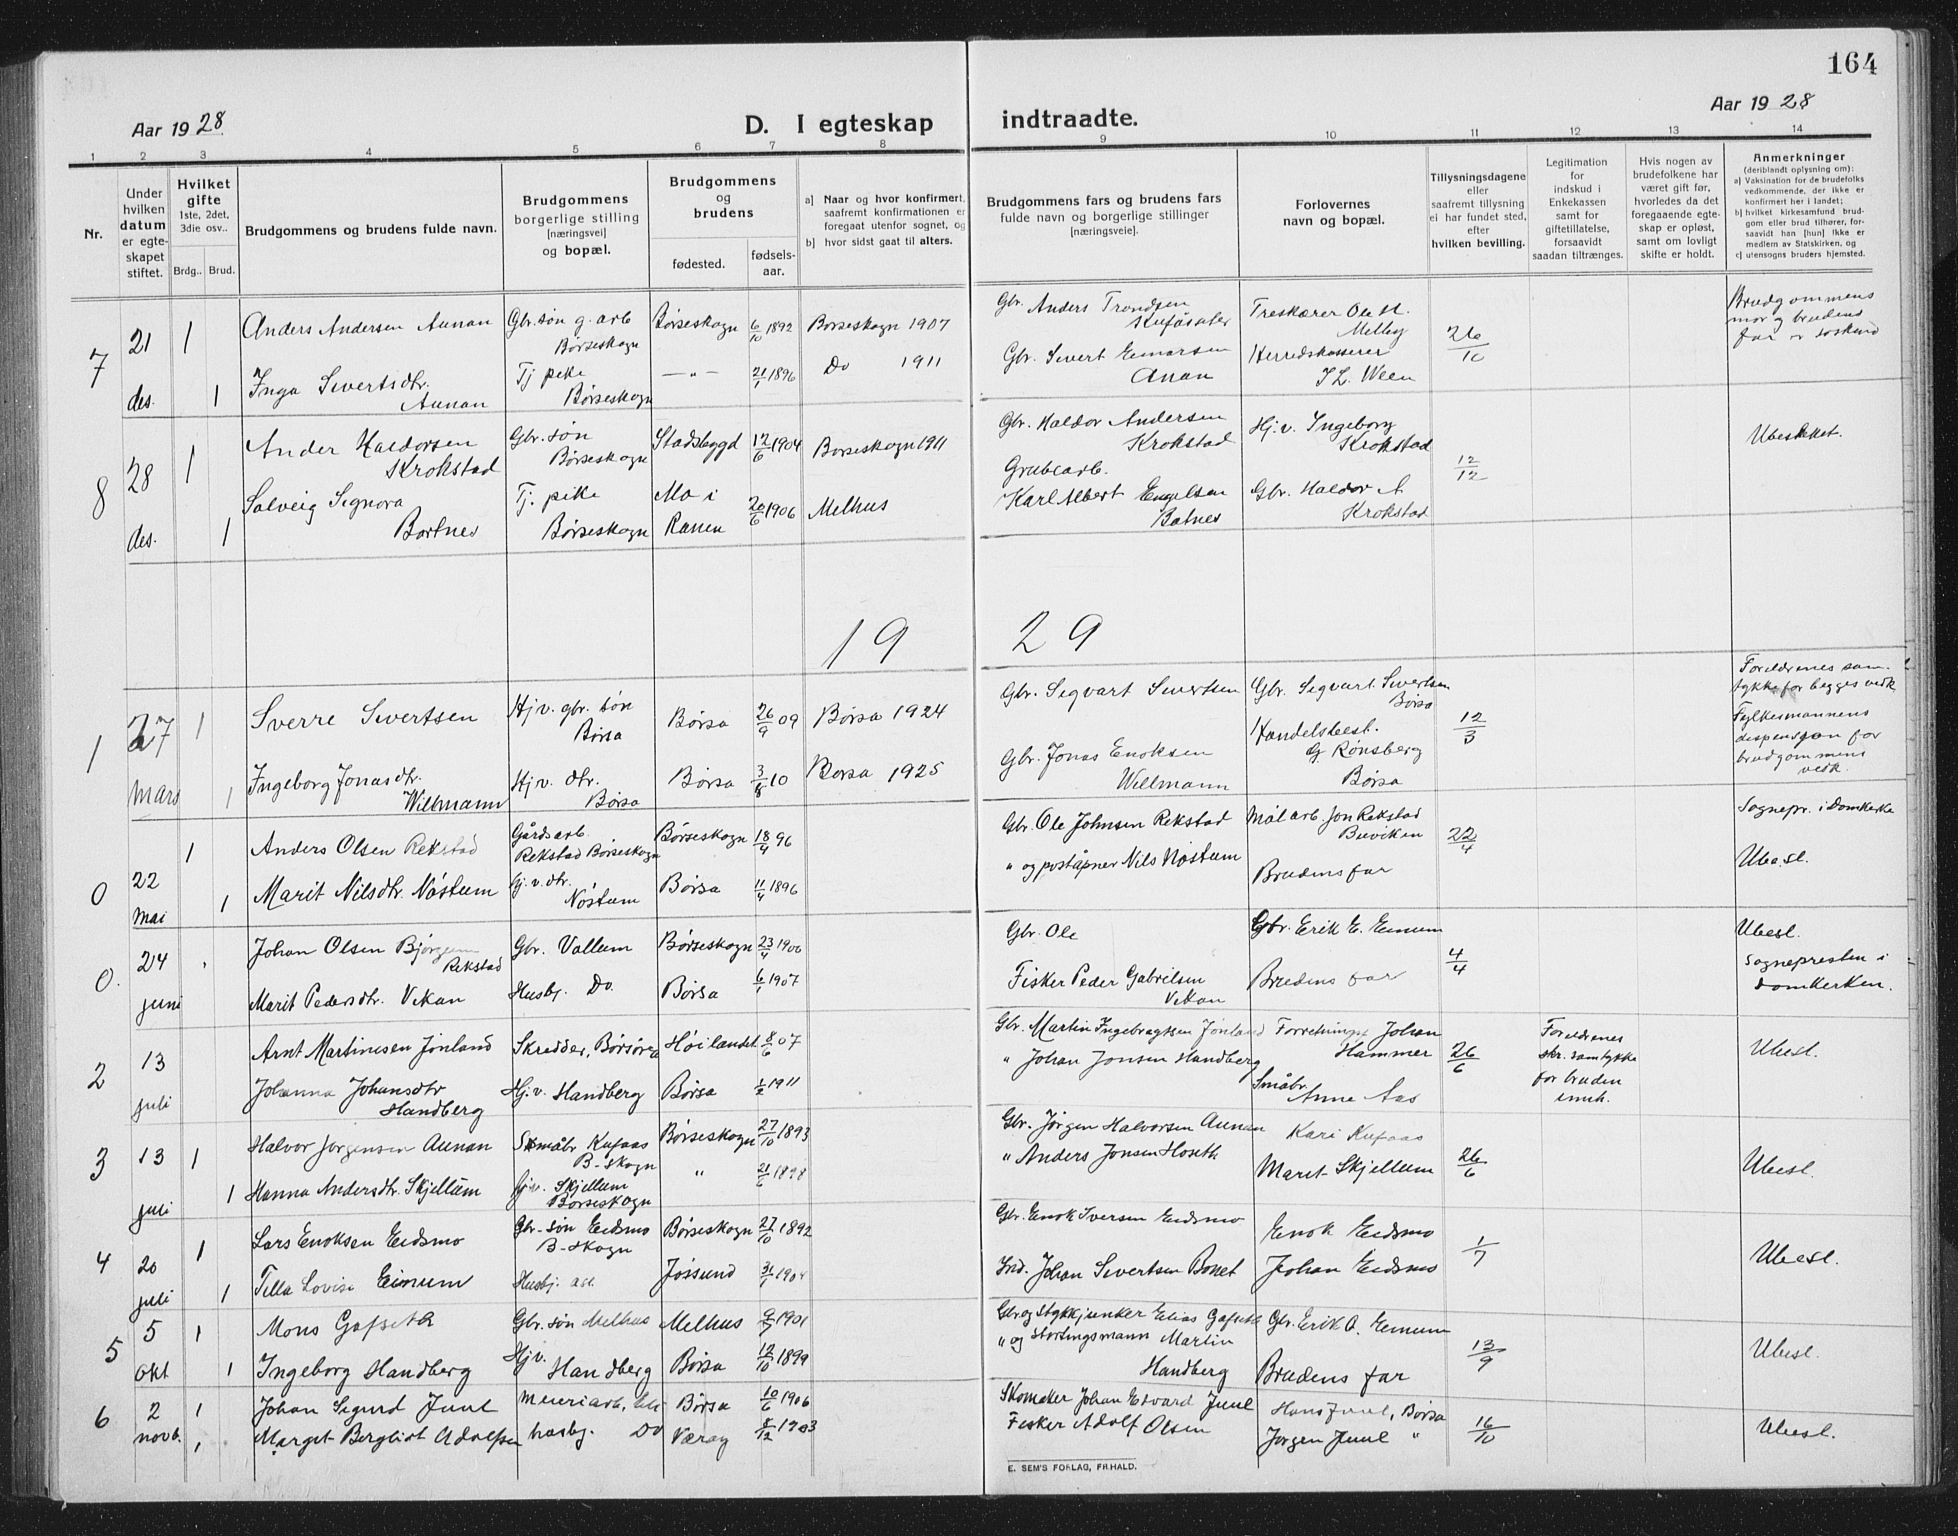 164
Aar 19 28
D. I egteskap indtraadte.
Aar 19 28
1 2 3 4 5 6 7 8 9 10 11 12 13 14
Nr.
Under hvilken datum er egteskapet stiftet.
Hvilket gifte
1ste, 2det, 3die osv..
Brdg.. Brud.
Brudgommens og brudens fulde navn.
Brudgommens borgerlige stilling [næringsvei] og bopæl.
Brudgommens og brudens
fødested. fødsels-aar.
a) Naar og hvor konfirmert, saafremt konfirmationen er foregaat utenfor sognet, og
b) hvor sidst gaat til alters.
Brudgommens fars og brudens fars fulde navn og borgerlige stillinger [næringsveie].
Forlovernes navn og bopæl.
Tillysningsdagene eller saafremt tillysning ei har fundet sted, efter hvilken bevilling.
Legitimation for indskud i Enkekassen samt for giftetillatelse, forsaavidt saadan tiltrænges.
Hvis nogen av brudefolkene har været gift før, hvorledes da det foregaaende egteskap er opløst, samt om lovligt skifte er holdt.
Anmerkninger
(deriblandt oplysning om):
a) Vaksination for de brudefolks vedkommende, der ikke er konfirmert her i landet;
b) hvilket kirkesamfund brudgom eller brud tilhører, forsaavidt han [hun] ikke er medlem av Statskirken, og
c) utensogns bruders hjemsted.
7 21 des. 1 Anders Andersen Aunan Gbr. søn g. arb Børseskogn Børseskogn 6/10 1892 Børseskogn 1907 Gbr. Anders Trondsen Kufåsater Treskærer Ole H. Melby 26/10 Brudgommens mor og brudens far er søskend
1 Inga Sivertsdtr. Aunan Tj pike Børseskogn —"— 21/1 1896 Do 1911 Gbr. Sivert Einarsen Anan Herredskasserer I L. Ween
8 28 des. 1 Ander Haldorsen Krokstad Gbr. søn Børseskogn Stadsbygd 12/6 1904 Børseskogn 1911 Gbr. Haldor Andersen Krokstad Hj. v. Ingeborg Krokstad 12/12 Ubesl­ektet.
1 Solveig Signora Bartnes Tj. pike Børseskogn Mo i Ranen 20/6 1906 Melhus Grubearb. Karl Albert Engelsen Batnes Gbr. Haldor A Krokstad
19 29
1 27 mars 1 Sverre Sivertsen Hj v. gbr. søn Børsa Børsa 26/9 09 Børsa 1924 Gbr. Segvart Sivertsen Gbr. Segvart Sivertsen Børsa 12/3 Foreldrenes samtykke for begges vedk Fylkesmannens dispensjon for brudgommens vedk.
1 Ingeborg Jonasdtr. Willmann Hj v. dtr. Børsa Børsa 3/8 10 Børsa 1925 Gbr. Jonas Enoksen Willmann Handelsbest. G Rønsberg Børsa
0 22 mai 1 Anders Olsen Rekstad Gårdsarb. Rekstad Børseskogn Børseskogn 18/4 96 Gbr. Ole Johnsen Rekstad Målarb. Jon Rekstad Buviken 22/4 Sognepr. i Domkerke
1 Marit Nilsdtr. Nøstum Hj. v. dtr. Nøstum Børsa 11/4 1896 " og poståpner Nils Nøstum Brudens far Ubesl.
0. 24 juni Johan Olsen Bjørgum Rekstad Gbr. Vallum Børseskogn 23/4 1900 Gbr. Ole Gbr. Erik E. Eimum 4/4 Ubesl. Sognepresten i Domkerken.
Marit Pedersdtr. Vekan Husbj. Do. Børsa 6/1 1907 Fisker Peder Gabrilsen Vekan Brudens far
2 13 juli Arnt Martinusen Jønland Skredder, Børsøra Høilandet 8/6 07 Gbr. Martin Ingebragtsen Jønland Forretningsf Johan Hammer 26/6 Foreldrenes skr. samtykke for bruden innh. Ubesl.
Johanna Johansdtr Handberg Hj. v. Handberg Børsa 1/2 1911 " Johan Jonsen Handberg Småbr. Anne Aas
3 13 juli 1 Halvor Jørgensen Aunan Småbr Kufaas B-skogn Børseskogn 27/10 1893 Gbr. Jørgen Halvorsen Aunan Kari Kufaas 26/6 Ubesl.
1 Hanna Andersdtr. Skjellum Hj v. Skjellum Børseskogn " 21/6 1898 " Anders Jonsen Hoseth Marit Skjellum
4 20 juli 1 Lars Enoksen Eidsmo Gbr-søn Eidsmo B-skogn Børseskogn 27/10 1892 Gbr. Enok Iversen Eidsmo Enok Eidsmo 1/7 Ubesl.
1 Tilla Lovise Eimum Husbj. ass Jøssund 31/1 1904 Ind. Johan Sivertsen Bonet Johan Eidsmo
5 5 okt 1 Mons Gafseth Gbr. søn Melhus Melhus 9/7 1901 Gbr og stykkjunker Elias Gafseth Gbr. Erik O. Eimum 13/9 Ubesl.
1 Ingeborg Handberg Hjv. Handberg Børsa 12/10 1899 " og stortingsmann Martin Handberg Brudens far
6 2 novb. 1 Johan Sigurd Juul Meieriarb, Børsa 10/6 1906 Skomaker Johan Edvard Juul Hans Juul, Børsa 16/10 Ubesl.
1 Marget Bergliot Adolfsen husbj. Do Værøy 8/12 1903 Fisker Adolf Olsen Jørgen Juul "
E. SEM'S FORLAG, FR.HALD.